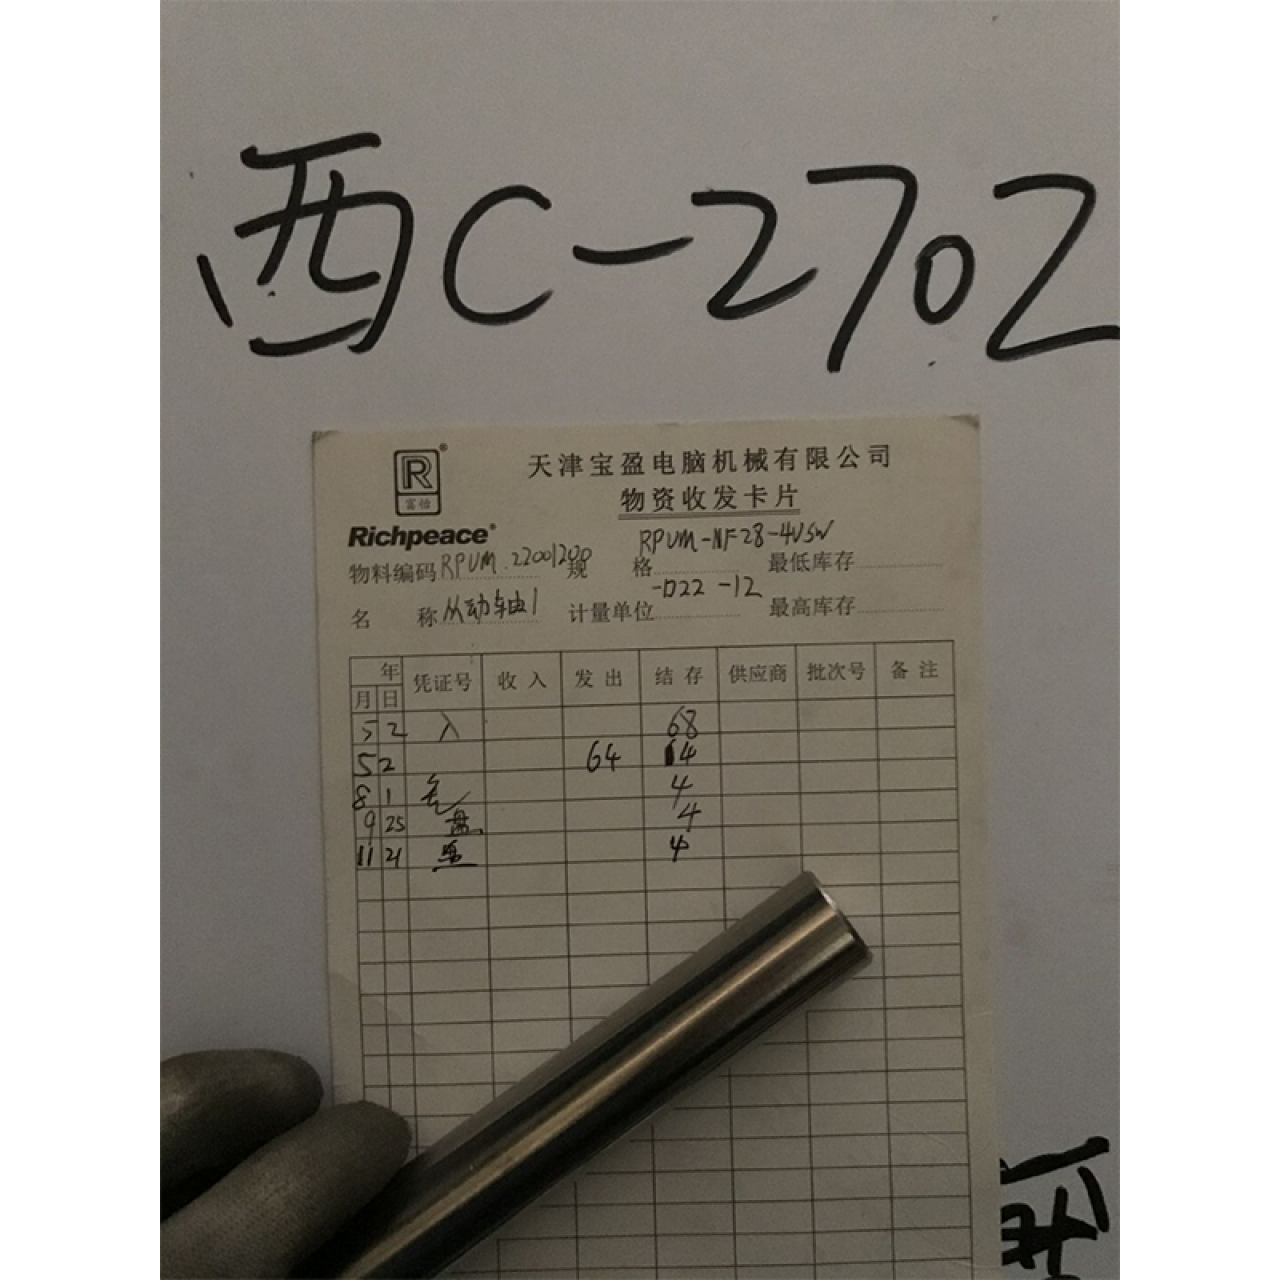 西C-2702
R®
富怡
Richpeace®
天津宝盈电脑机械有限公司
物资收发卡片
物料编码 RPUM.22001200 规格 RPUM-NF28-4V5W-D22-12 最低库存
名称 从动轴1 计量单位 最高库存
年 月 日 凭证号 收入 发出 结存 供应商 批次号 备注
5 2 入 68
5 2 64 4
8 1 4
9 25 盘 4
11 21 盘 4